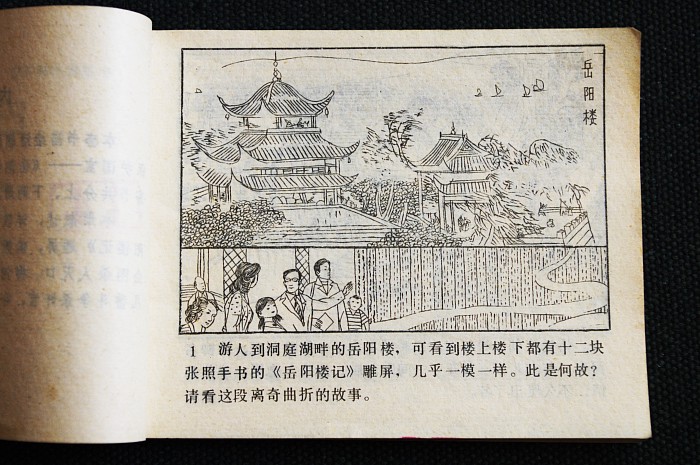 岳阳楼
1 游人到洞庭湖畔的岳阳楼，可看到楼上楼下都有十二块
张照手书的《岳阳楼记》雕屏，几乎一模一样。此是何故？
请看这段离奇曲折的故事。